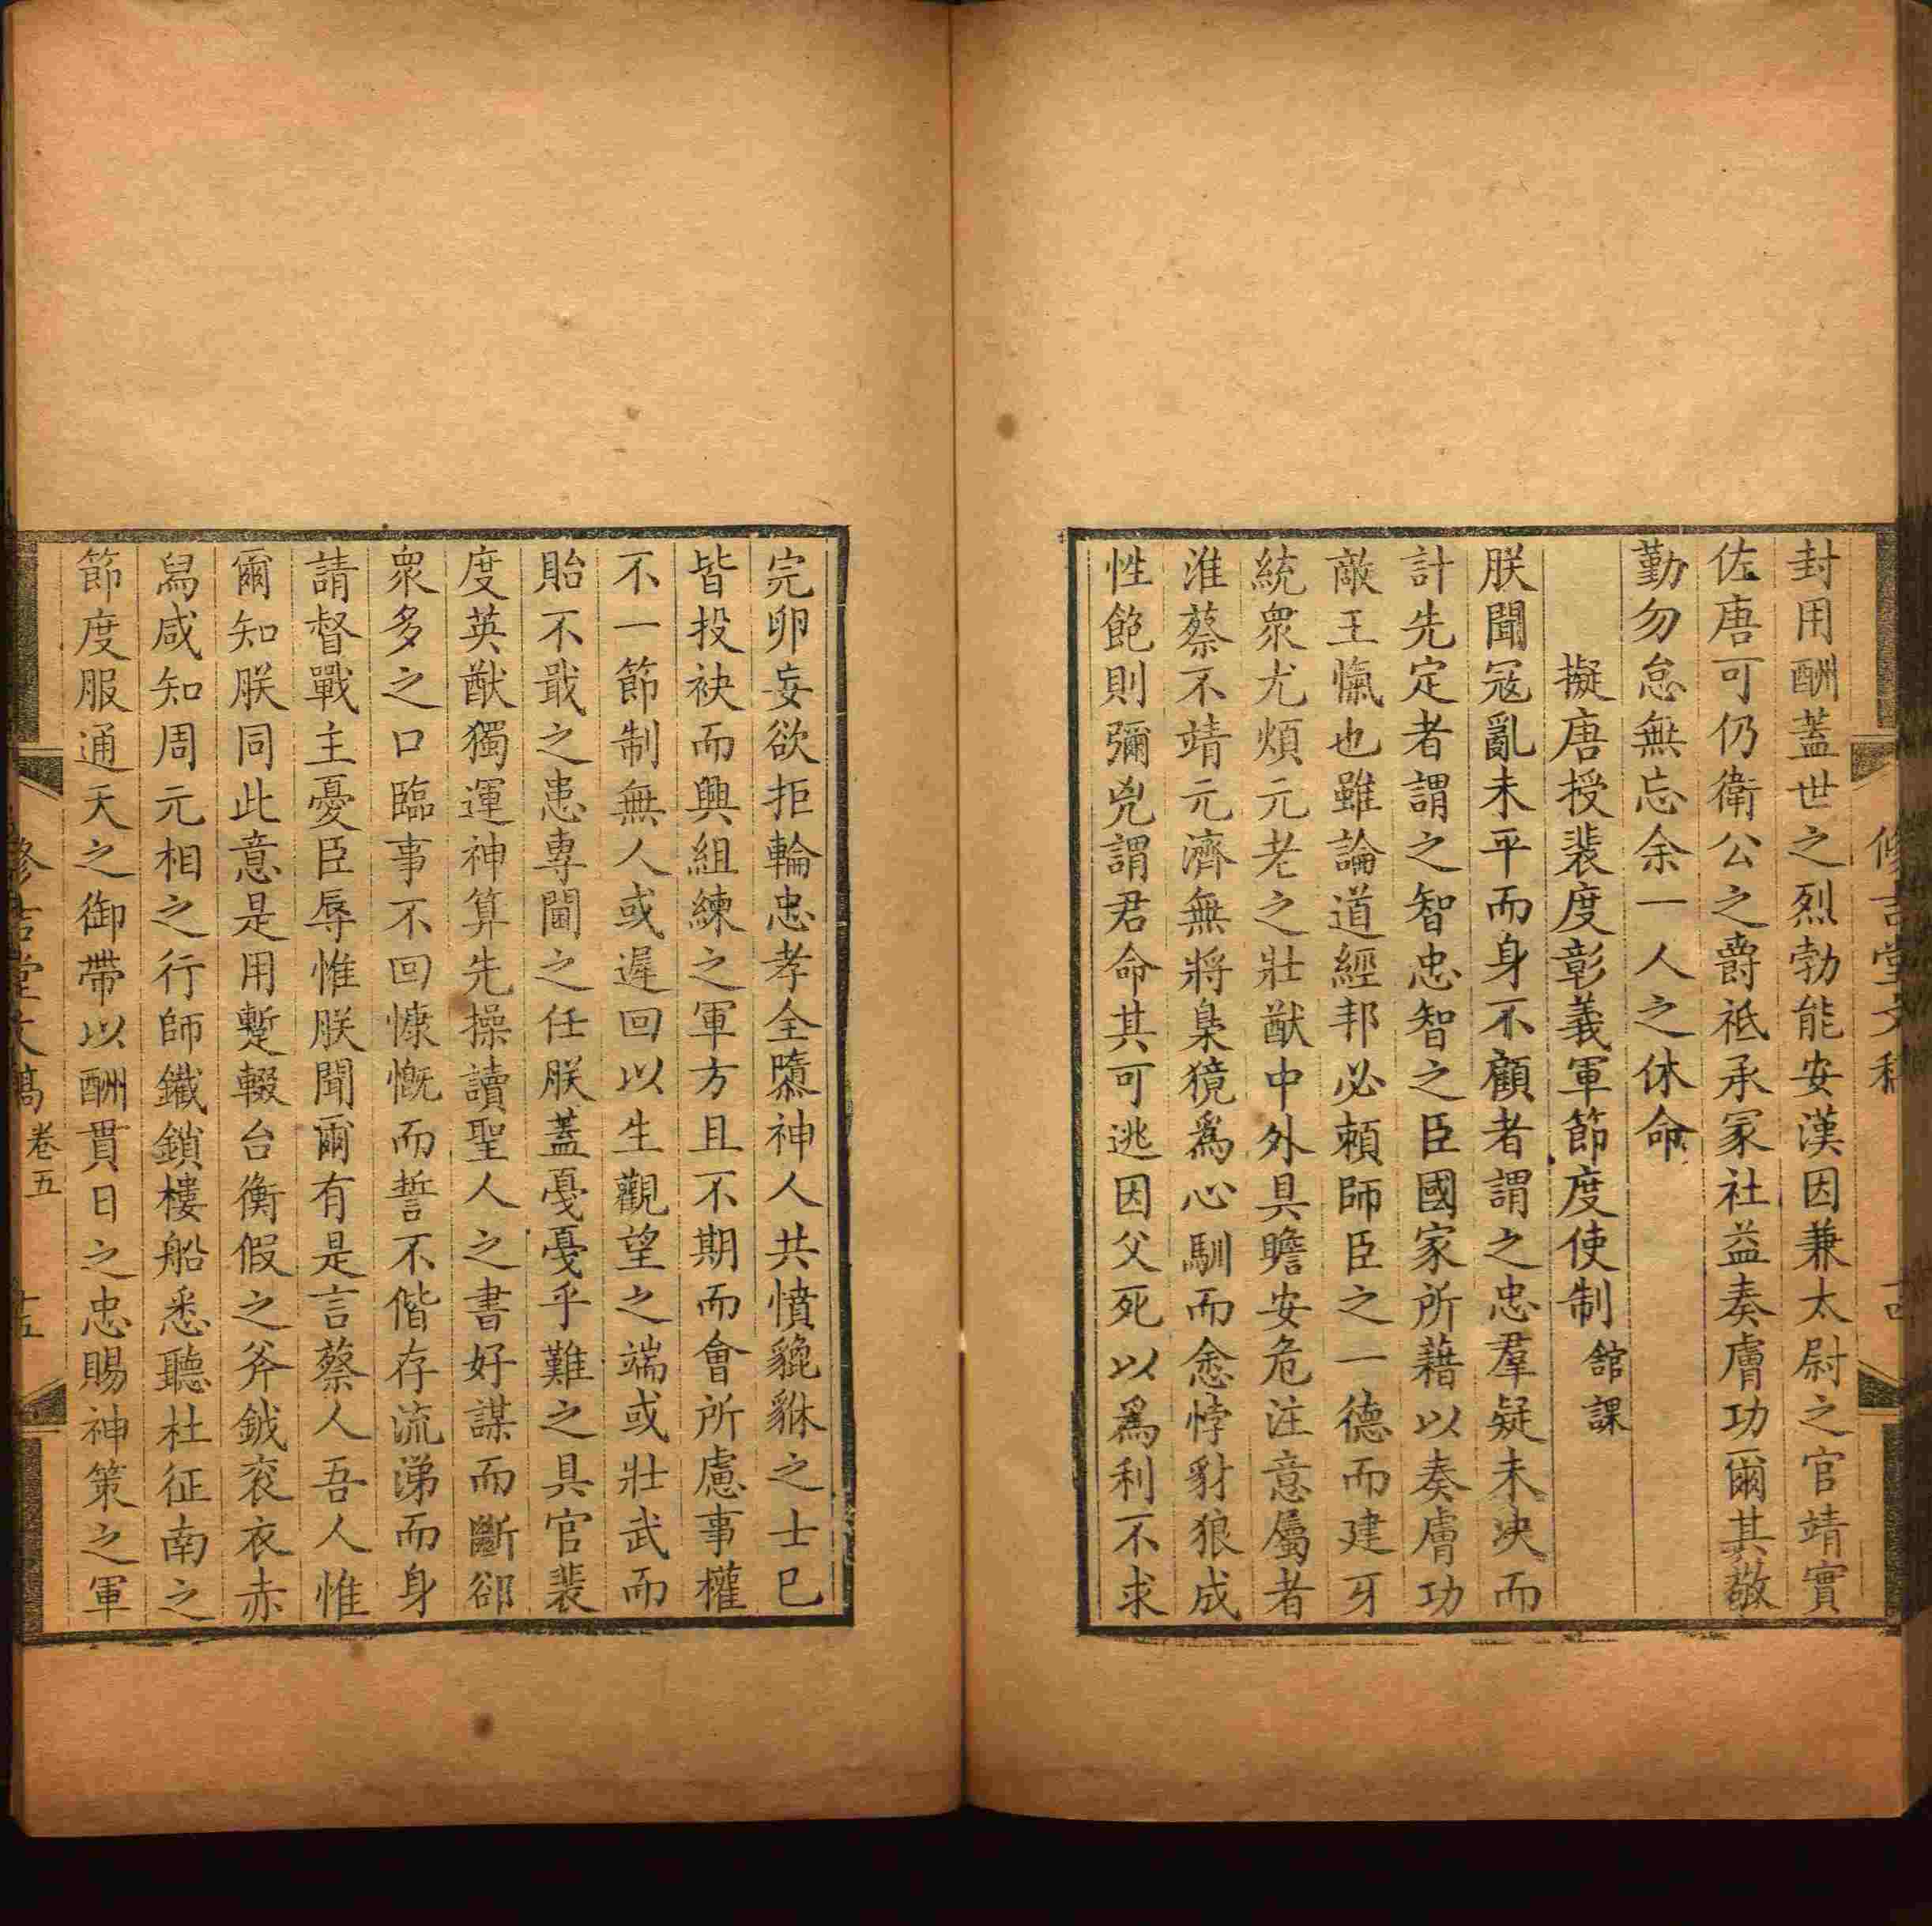 封用酬蓋世之烈勃能安漢因兼太尉之官靖實
佐唐可仍衛公之爵祗承冢社益奏膚功爾其敬
勤勿怠無忘余一人之休命
擬唐授裴度彰義軍節度使制館課
朕聞冦亂未平而身不顧者謂之忠羣疑未决而
計先定者謂之智忠智之臣國家所藉以奏膚功
敵王愾也雖論道經邦必頼師臣之一德而建牙
統衆尤煩元老之壯猷中外具瞻安危注意屬者
淮蔡不靖元濟無將梟獍爲心馴而悆悖豺狼成
性飽則彌兇謂君命其可逃因父死以爲利不求
完卵妄欲拒輪忠孝全隳神人共憤貔貅之士巳
皆投袂而興組練之軍方且不期而會所慮事權
不一節制無人或遲回以生觀望之端或壯武而
貽不戢之患專閫之任朕蓋戞戞乎難之具官裴
度英猷獨運神算先操讀聖人之書好謀而斷郤
衆多之口臨事不回慷慨而誓不偕存流涕而身
請督戰主憂臣辱惟朕聞爾有是言蔡人吾人惟
爾知朕同此意是用蹔輟台衡假之斧鉞衮衣赤
舄咸知周元相之行師鐵鎖樓船悉聽杜征南之
節度服通天之御帶以酬貫日之忠賜神策之軍
卷五